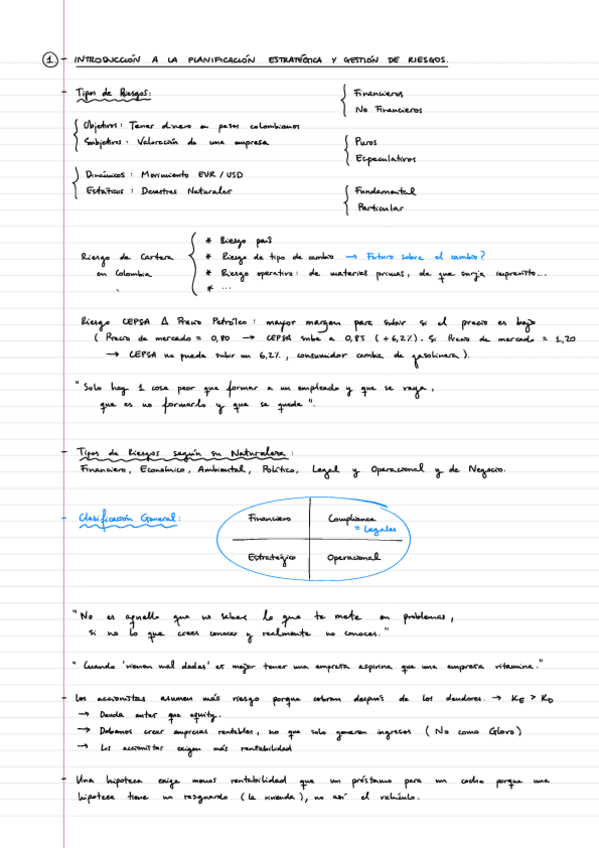 1 - INTRODUCCIÓN A LA PLANIFICACIÓN ESTRATÉGICA Y GESTIÓN DE RIESGOS.
- Tipos de Riesgos:
Financieros
No Financieros
Objetivos: Tener dinero en pesos colombianos
Subjetivos: Valoración de una empresa
Puros
Especulativos
Dinámicos: Movimiento EUR/USD
Estáticos: Desastres Naturales
Fundamental
Particular
Riesgo de Cartera
en Colombia
* Riesgo país
* Riesgo de tipo de cambio → Futuro sobre el cambio?
* Riesgo operativo: de materias primas, de que surja imprevisto...
* ...
Riesgo CEPSA Δ Precio Petróleo: mayor margen para subir si el precio es bajo
(Precio de mercado = 0,80 → CEPSA sube a 0,85 (+6,2%). Si Precio de mercado = 1,20
→ CEPSA no puede subir un 6,2%, consumidor cambia de gasolinera).
"Solo hay 1 cosa peor que formar a un empleado y que se vaya,
que es no formarlo y que se quede".
- Tipos de Riesgos según su Naturaleza:
Financiero, Económico, Ambiental, Político, Legal y Operacional y de Negocio.
- Clasificación General:
Financiero
Compliance
= Legales
Estratégico
Operacional
"No es aquello que no sabes lo que te mete en problemas,
si no lo que crees conocer y realmente no conoces."
"Cuando 'vienen mal dadas' es mejor tener una empresa aspirina que una empresa vitamina."
- Los accionistas asumen más riesgo porque cobran después de los deudores. → KE > KD
→ Deuda antes que equity.
→ Debemos crear empresas rentables, no que solo generen ingresos (No como Glovo)
→ Los accionistas exigen más rentabilidad
- Una hipoteca exige menos rentabilidad que un préstamo para un coche porque una
hipoteca tiene un resguardo (la vivienda), no así el vehículo.